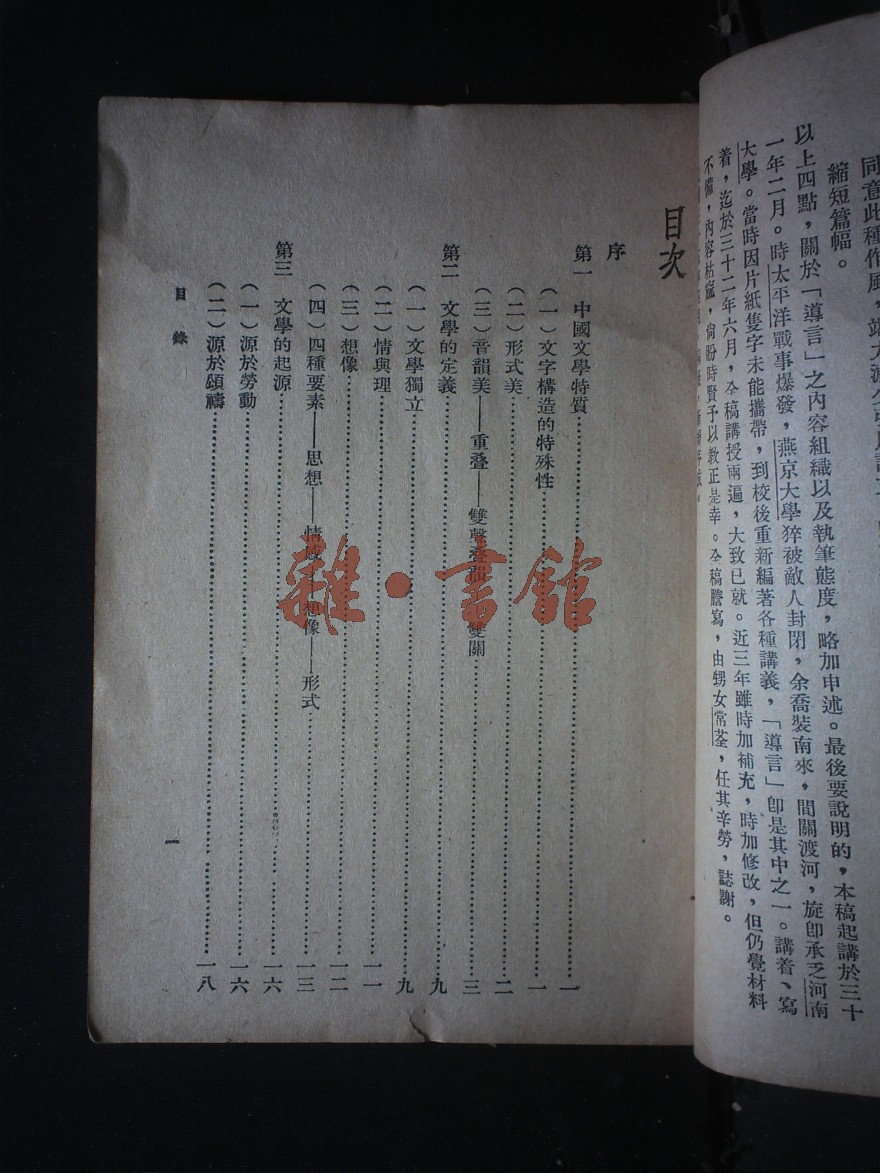 同意此種作風，
縮短篇幅。
以上四點，關於「導言」之內容組織以及執筆態度，略加申述。最後要說明的，本稿起講於三十
一年二月。時太平洋戰事爆發，燕京大學猝被敵人封閉，余喬裝南來，間關渡河，旋卽承乏河南
大學。當時因片紙隻字未能攜帶，到校後重新編著各種講義，「導言」卽是其中之一。講着、寫
着，迄於三十二年六月，全稿講授兩遍，大致已就。近三年雖時加補充，時加修改，但仍覺材料
不備，內容枯窳，尙盼時賢予以教正是幸。全稿謄寫，由甥女常荃，任其辛勞，誌謝。
目次
序
第一 中國文學特質 一
（一）文字構造的特殊性 一
（二）形式美 二
（三）音韻美——重叠——雙聲叠韻——雙關 三
第二 文學的定義 九
（一）文學獨立 九
（二）情與理 一一
（三）想像 一二
（四）四種要素——思想——情感——想像——形式 一三
第三 文學的起源 一六
（一）源於勞動 一六
（二）源於頌禱 一八
目錄
一
雜·書館